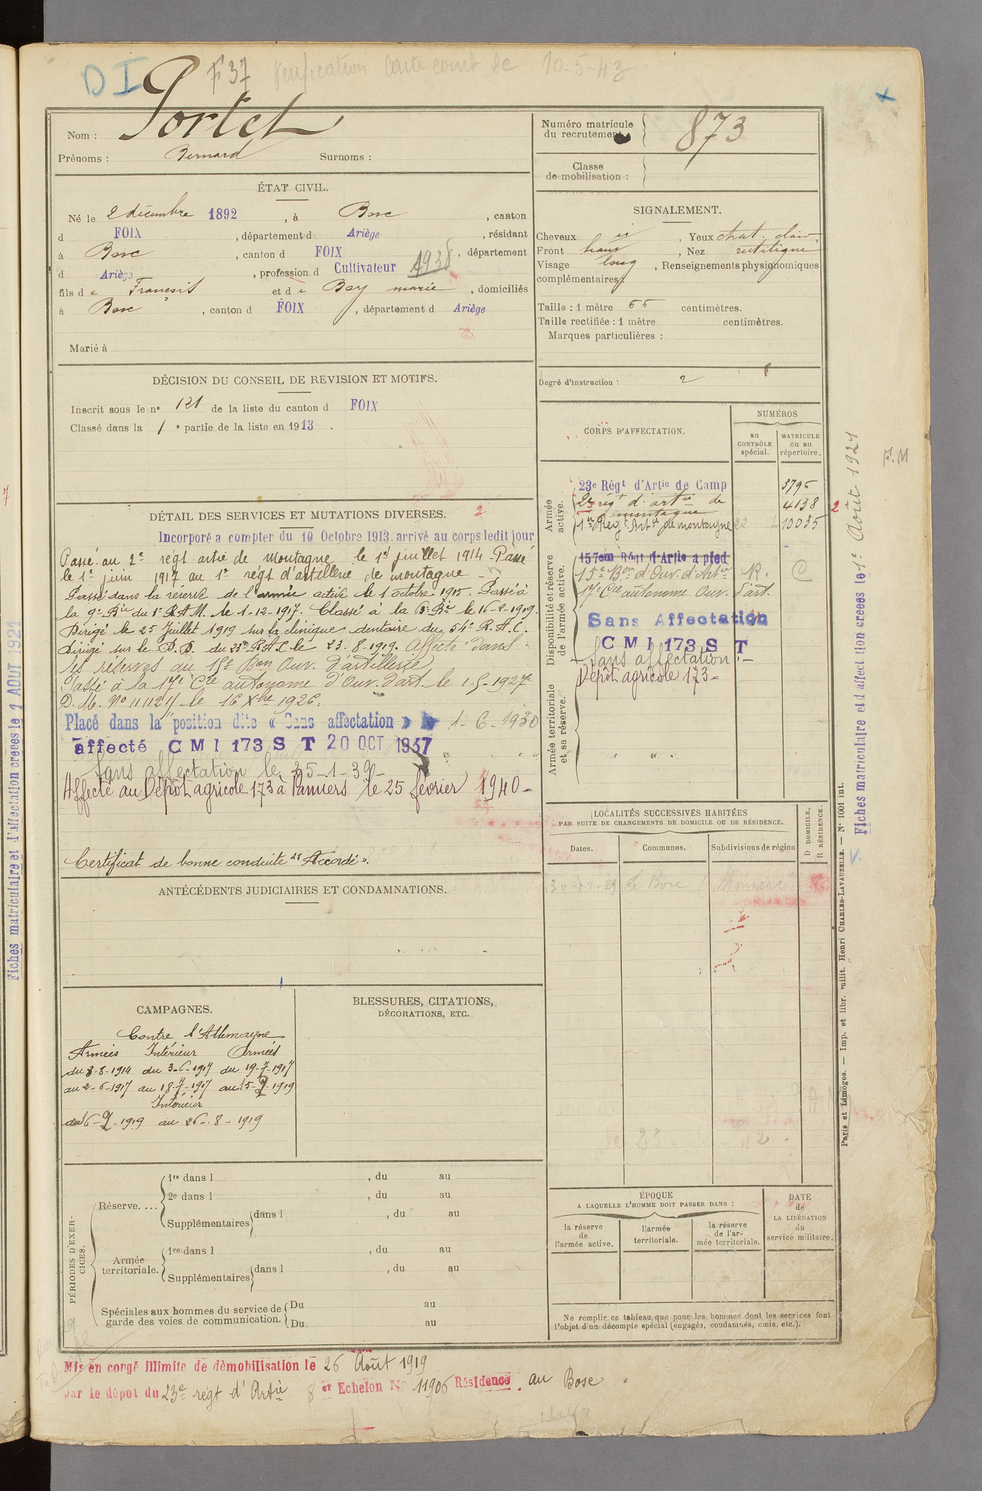 D I F 37 Verification Carte comt de 10-5-43
Nom : Portet
Prénoms : Bernard Surnoms :
Numéro matricule
du recrutement 873
Classe
de mobilisation :
ÉTAT CIVIL.
Né le 2 décembre 1892, à Bosc, canton
d FOIX, département d Ariège, résidant
à Bosc, canton d FOIX, département
d Ariège, profession d Cultivateur 1938
fils de François et de Bay marie, domiciliés
à Bosc, canton d FOIX, département d Ariège
Marié à
SIGNALEMENT.
Cheveux Yeux chat. clair,
Front haut, Nez rectiligne
Visage long, Renseignements physionomiques
complémentaires:
Taille : 1 mètre 66 centimètres.
Taille rectifiée : 1 mètre centimètres.
Marques particulières :
Degré d'instruction : 2
DÉCISION DU CONSEIL DE REVISION ET MOTIFS.
Inscrit sous le no 121 de la liste du canton d FOIX
Classé dans la 1e partie de la liste en 1913.
DÉTAIL DES SERVICES ET MUTATIONS DIVERSES.
Incorporé a compter du 10 Octobre 1913. arrivé au corps ledit jour
Passé au 2e régt artie de montagne le 1er juillet 1914 Passé
le 1er juin 1917 au 1er régt d'artillerie de montagne
Passé dans la réserve de l'armée active le 1 octobre 1915. Passé à
la 9e Bie du 1er R.A.M. le 1-12-1917. Classé à la Bie le 16-2-1919.
Dirigé le 25 Juillet 1919 sur la clinique dentaire du 54e R.A.C.
Dirigé sur le D.D. du 23e R.A.C le 23.8.1919. Affecté dans
les réserves au 15e Bon Ouv. d'artillerie
Passé à la 17e Cie autonome d'Ouv. d'art. le 1-5-1927
D.M. No 11127 le 16 Xbre 1926.
Placé dans la position dite « Sans affectation » le 1-6-1930
affecté C M I 173 S T 20 OCT 1937
Sans affectation le 25-1-39-
Affecté au Dépôt agricole 173 à Pamiers le 25 février 1940-
Certificat de bonne conduite "Accordé".
ANTÉCÉDENTS JUDICIAIRES ET CONDAMNATIONS.
CORPS D'AFFECTATION.
NUMÉROS
AU CONTRÔLE spécial.
MATRICULE OU AU répertoire.
Armée active.
23e Régt d'Artie de Camp 3796
2e régt d'artie de montagne 4138
1er Régt Artie de montagne 10035
Disponibilité et réserve de l'armée active.
157em Régt d'Artie a pied
15e Bon d'Ouv. d'Artie R. C
17e Cie autonome Ouv. d'art.
Sans Affectation
C M I 173 S T
Sans affectation -
Dépôt agricole 173-
Armée territoriale et sa réserve.
LOCALITÉS SUCCESSIVES HABITÉES
PAR SUITE DE CHANGEMENTS DE DOMICILE OU DE RÉSIDENCE.
Dates. Communes. Subdivisions de région
D DOMICILE.
R RÉSIDENCE.
Le Bosc
CAMPAGNES.
Contre l'Allemagne
Armées Intérieur Armées
du 3-8-1914 du 3-6-1917 du 19-7-1917
au 2-6-1917 au 18-7-1917 au 15-9-1919
Intérieur
du 16-9-1919 au 26-8-1919
BLESSURES, CITATIONS,
DÉCORATIONS, ETC.
PÉRIODES D'EXERCICES.
Réserve....
1re dans l , du au
2e dans l , du au
Supplémentaires dans l , du au
Armée territoriale.
1re dans l , du au
Supplémentaires dans l , du au
Spéciales aux hommes du service de
garde des voies de communication.
Du au
Du au
ÉPOQUE
A LAQUELLE L'HOMME DOIT PASSER DANS :
la réserve de l'armée active.
l'armée territoriale.
la réserve de l'armée territoriale.
DATE de LA LIBÉRATION du service militaire.
Ne remplir ce tableau que pour les hommes dont les services font
l'objet d'un décompte spécial (engagés, condamnés, omis, etc.).
Mis en congé illimité de démobilisation le 26 Août 1919
par le dépôt du 23e régt d'Artie 8 er Echelon No 11906 Résidence: au Bosc.
Fiches matriculaire et d'affectation créées le 1 AOUT 1921
Fiches matriculaire et d'affectation créées le 1er Août 1921
F.M
Paris et Limoges. — Imp. et libr. milit. Henri CHARLES-LAVAUZELLE. — No 1001 int.